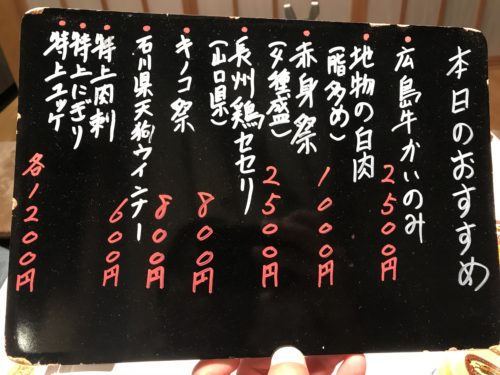 本日のおすすめ
広島牛かいのみ 2500円
地物の白肉
(脂多め) 1000円
赤身祭
種盛) 2500円
長州鶏セセリ
(山口県) 800円
キノコ祭 800円
石川県天狗ウインナー 600円
特上肉刺
特上にぎり
特上ユッケ
各1200円